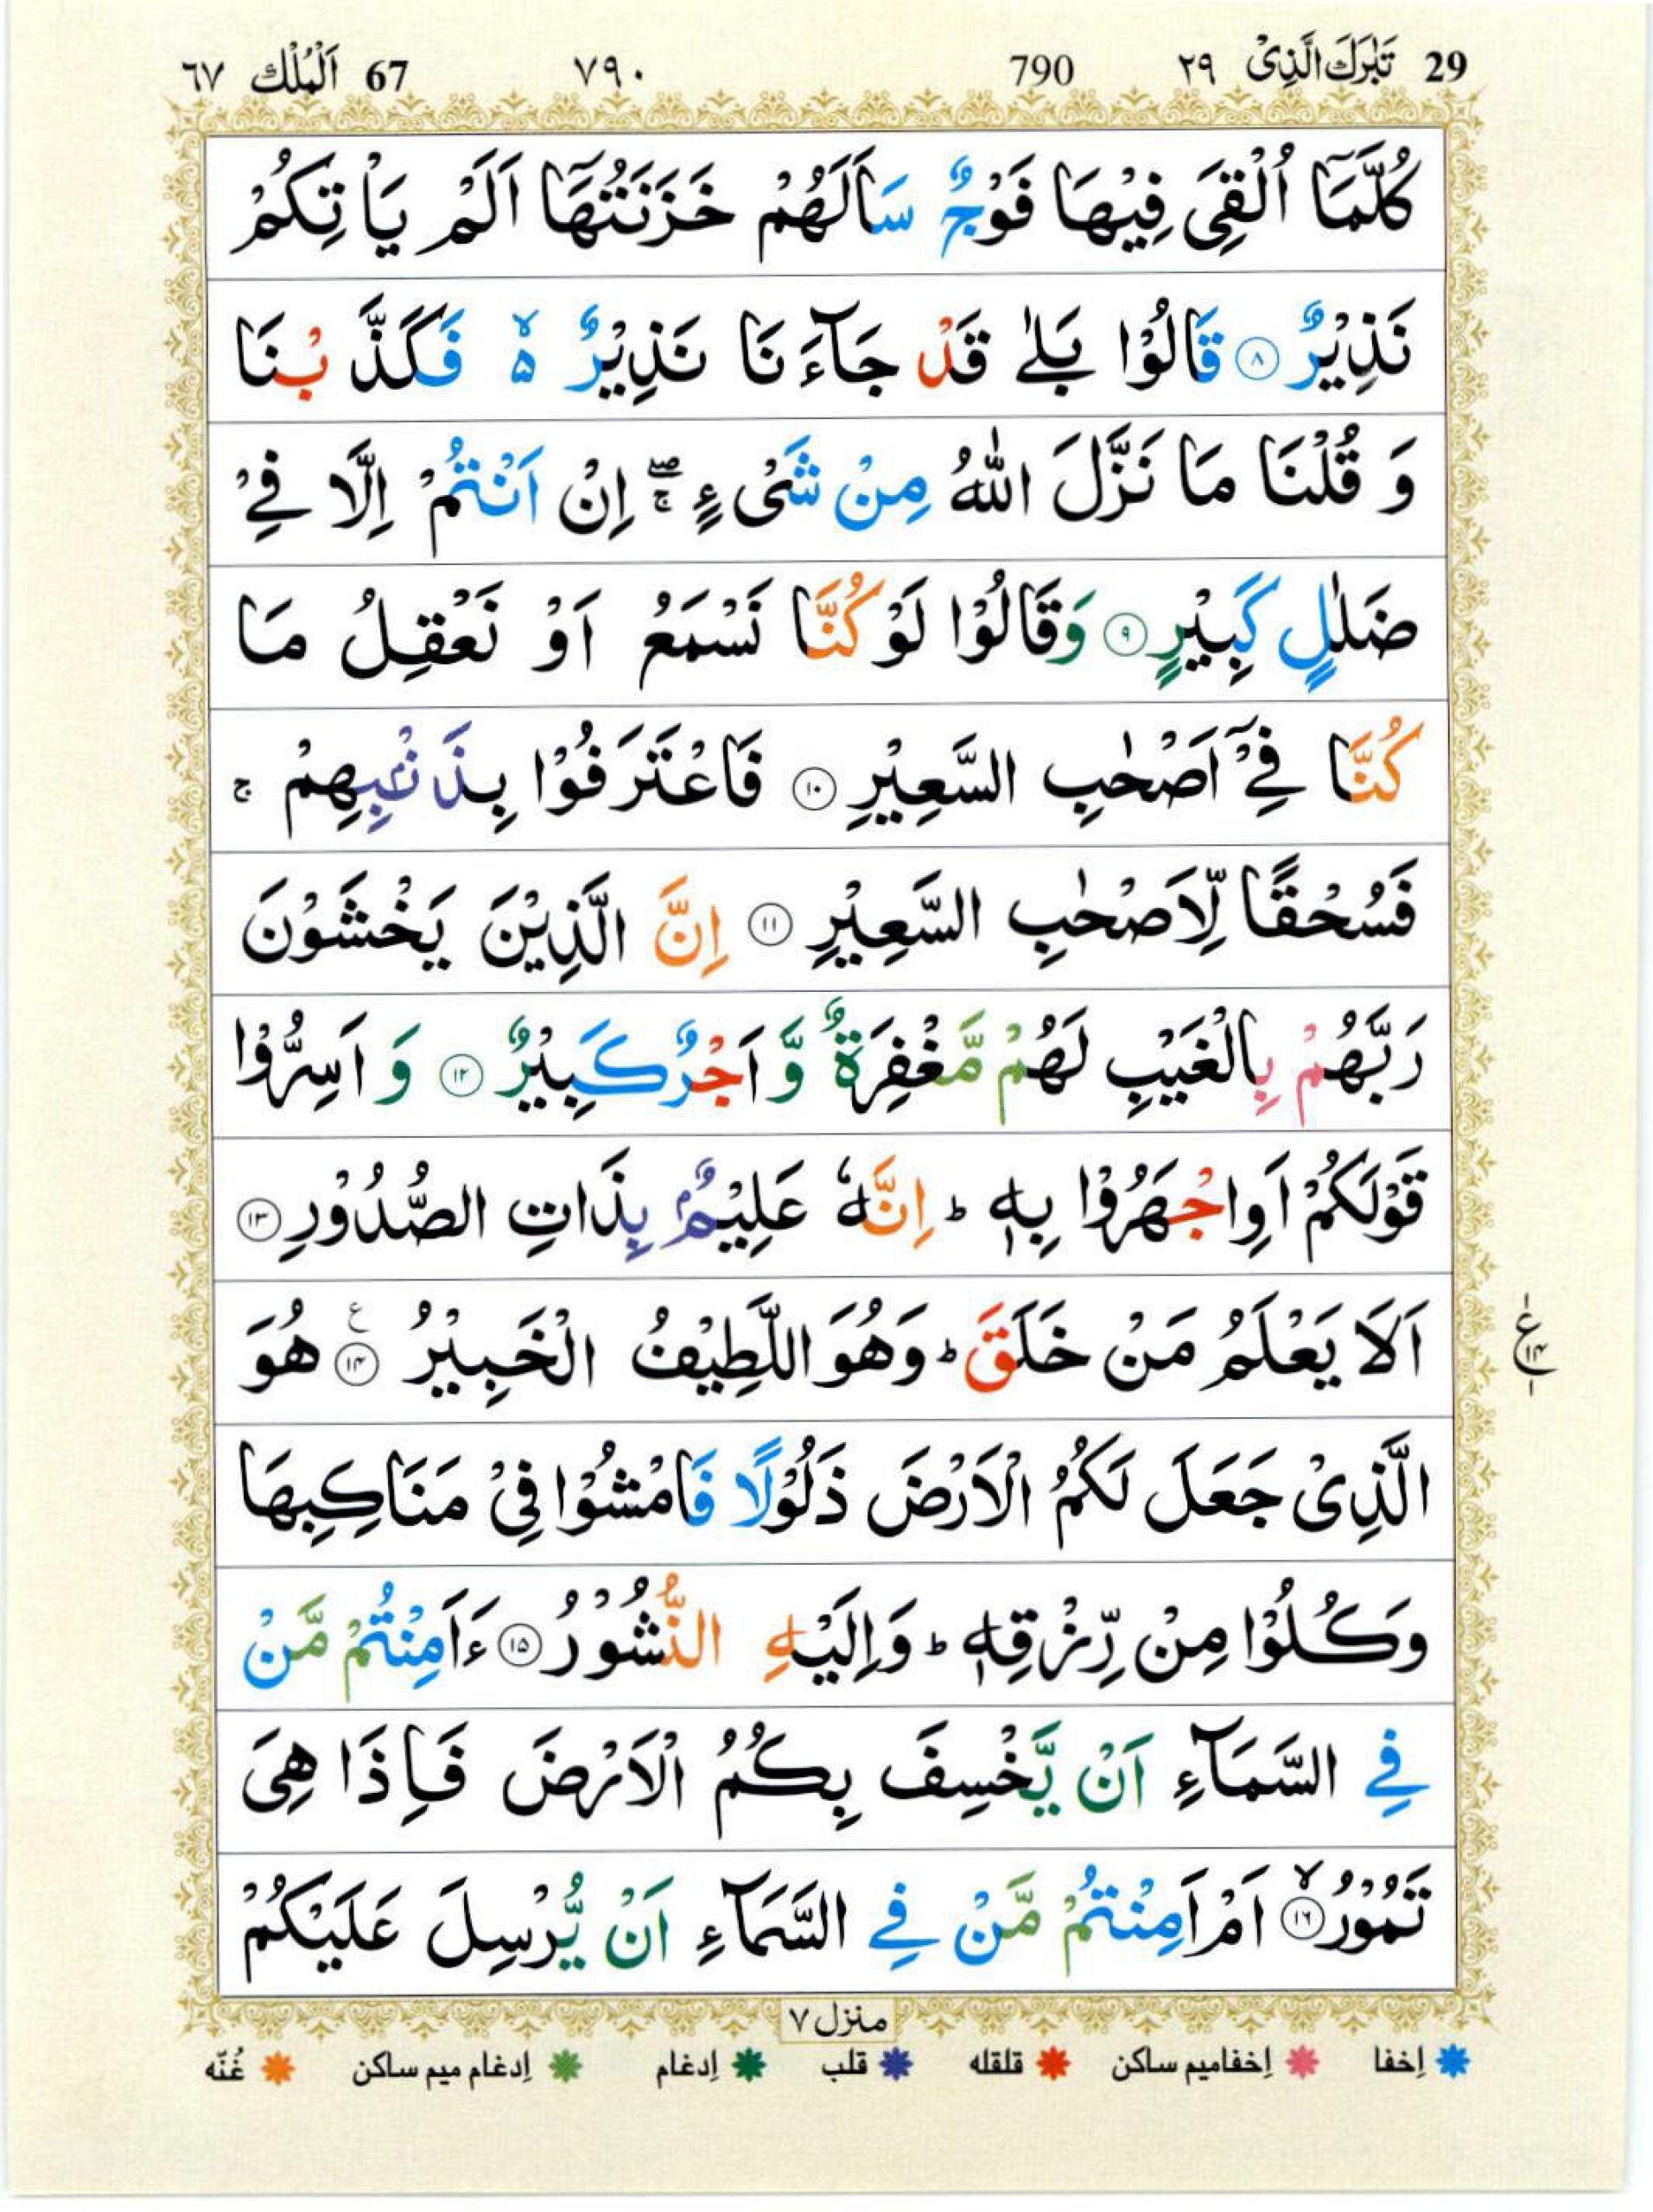 29 تَبٰرَكَ الَّذِىْ ٢٩ 790 ٧٩٠ 67 اَلْمُلْك ٦٧
كُلَّمَاۤ اُلْقِىَ فِيْهَا فَوْجٌ سَاَلَهُمْ خَزَنَتُهَاۤ اَلَمْ يَاْتِكُمْ
نَذِيْرٌ ۝٨ قَالُوْا بَلٰى قَدْ جَآءَنَا نَذِيْرٌ ۙ۵ فَكَذَّبْنَا
وَ قُلْنَا مَا نَزَّلَ اللّٰهُ مِنْ شَىْءٍ ۖۚ اِنْ اَنْتُمْ اِلَّا فِىْ
ضَلٰلٍ كَبِيْرٍ ۝٩ وَقَالُوْا لَوْ كُنَّا نَسْمَعُ اَوْ نَعْقِلُ مَا
كُنَّا فِىْۤ اَصْحٰبِ السَّعِيْرِ ۝١٠ فَاعْتَرَفُوْا بِذَنْۢبِهِمْ ۚ
فَسُحْقًا لِّاَصْحٰبِ السَّعِيْرِ ۝١١ اِنَّ الَّذِيْنَ يَخْشَوْنَ
رَبَّهُمْ بِالْغَيْبِ لَهُمْ مَّغْفِرَةٌ وَّ اَجْرٌ كَبِيْرٌ ۝١٢ وَ اَسِرُّوْا
قَوْلَكُمْ اَوِ اجْهَرُوْا بِهٖ ؕ اِنَّهٗ عَلِيْمٌۢ بِذَاتِ الصُّدُوْرِ ۝١٣
اَلَا يَعْلَمُ مَنْ خَلَقَ ؕ وَهُوَ اللَّطِيْفُ الْخَبِيْرُ ۝١٤ ع هُوَ
الَّذِىْ جَعَلَ لَكُمُ الْاَرْضَ ذَلُوْلًا فَامْشُوْا فِىْ مَنَاكِبِهَا
وَكُلُوْا مِنْ رِّزْقِهٖ ؕ وَاِلَيْهِ النُّشُوْرُ ۝١٥ ءَاَمِنْتُمْ مَّنْ
فِى السَّمَآءِ اَنْ يَّخْسِفَ بِكُمُ الْاَرْضَ فَاِذَا هِىَ
تَمُوْرُ ۙ۝١٦ اَمْ اَمِنْتُمْ مَّنْ فِى السَّمَآءِ اَنْ يُّرْسِلَ عَلَيْكُمْ
منزل ٧
إخفا إخفاميم ساكن قلقله قلب إدغام إدغام ميم ساكن غُنّه